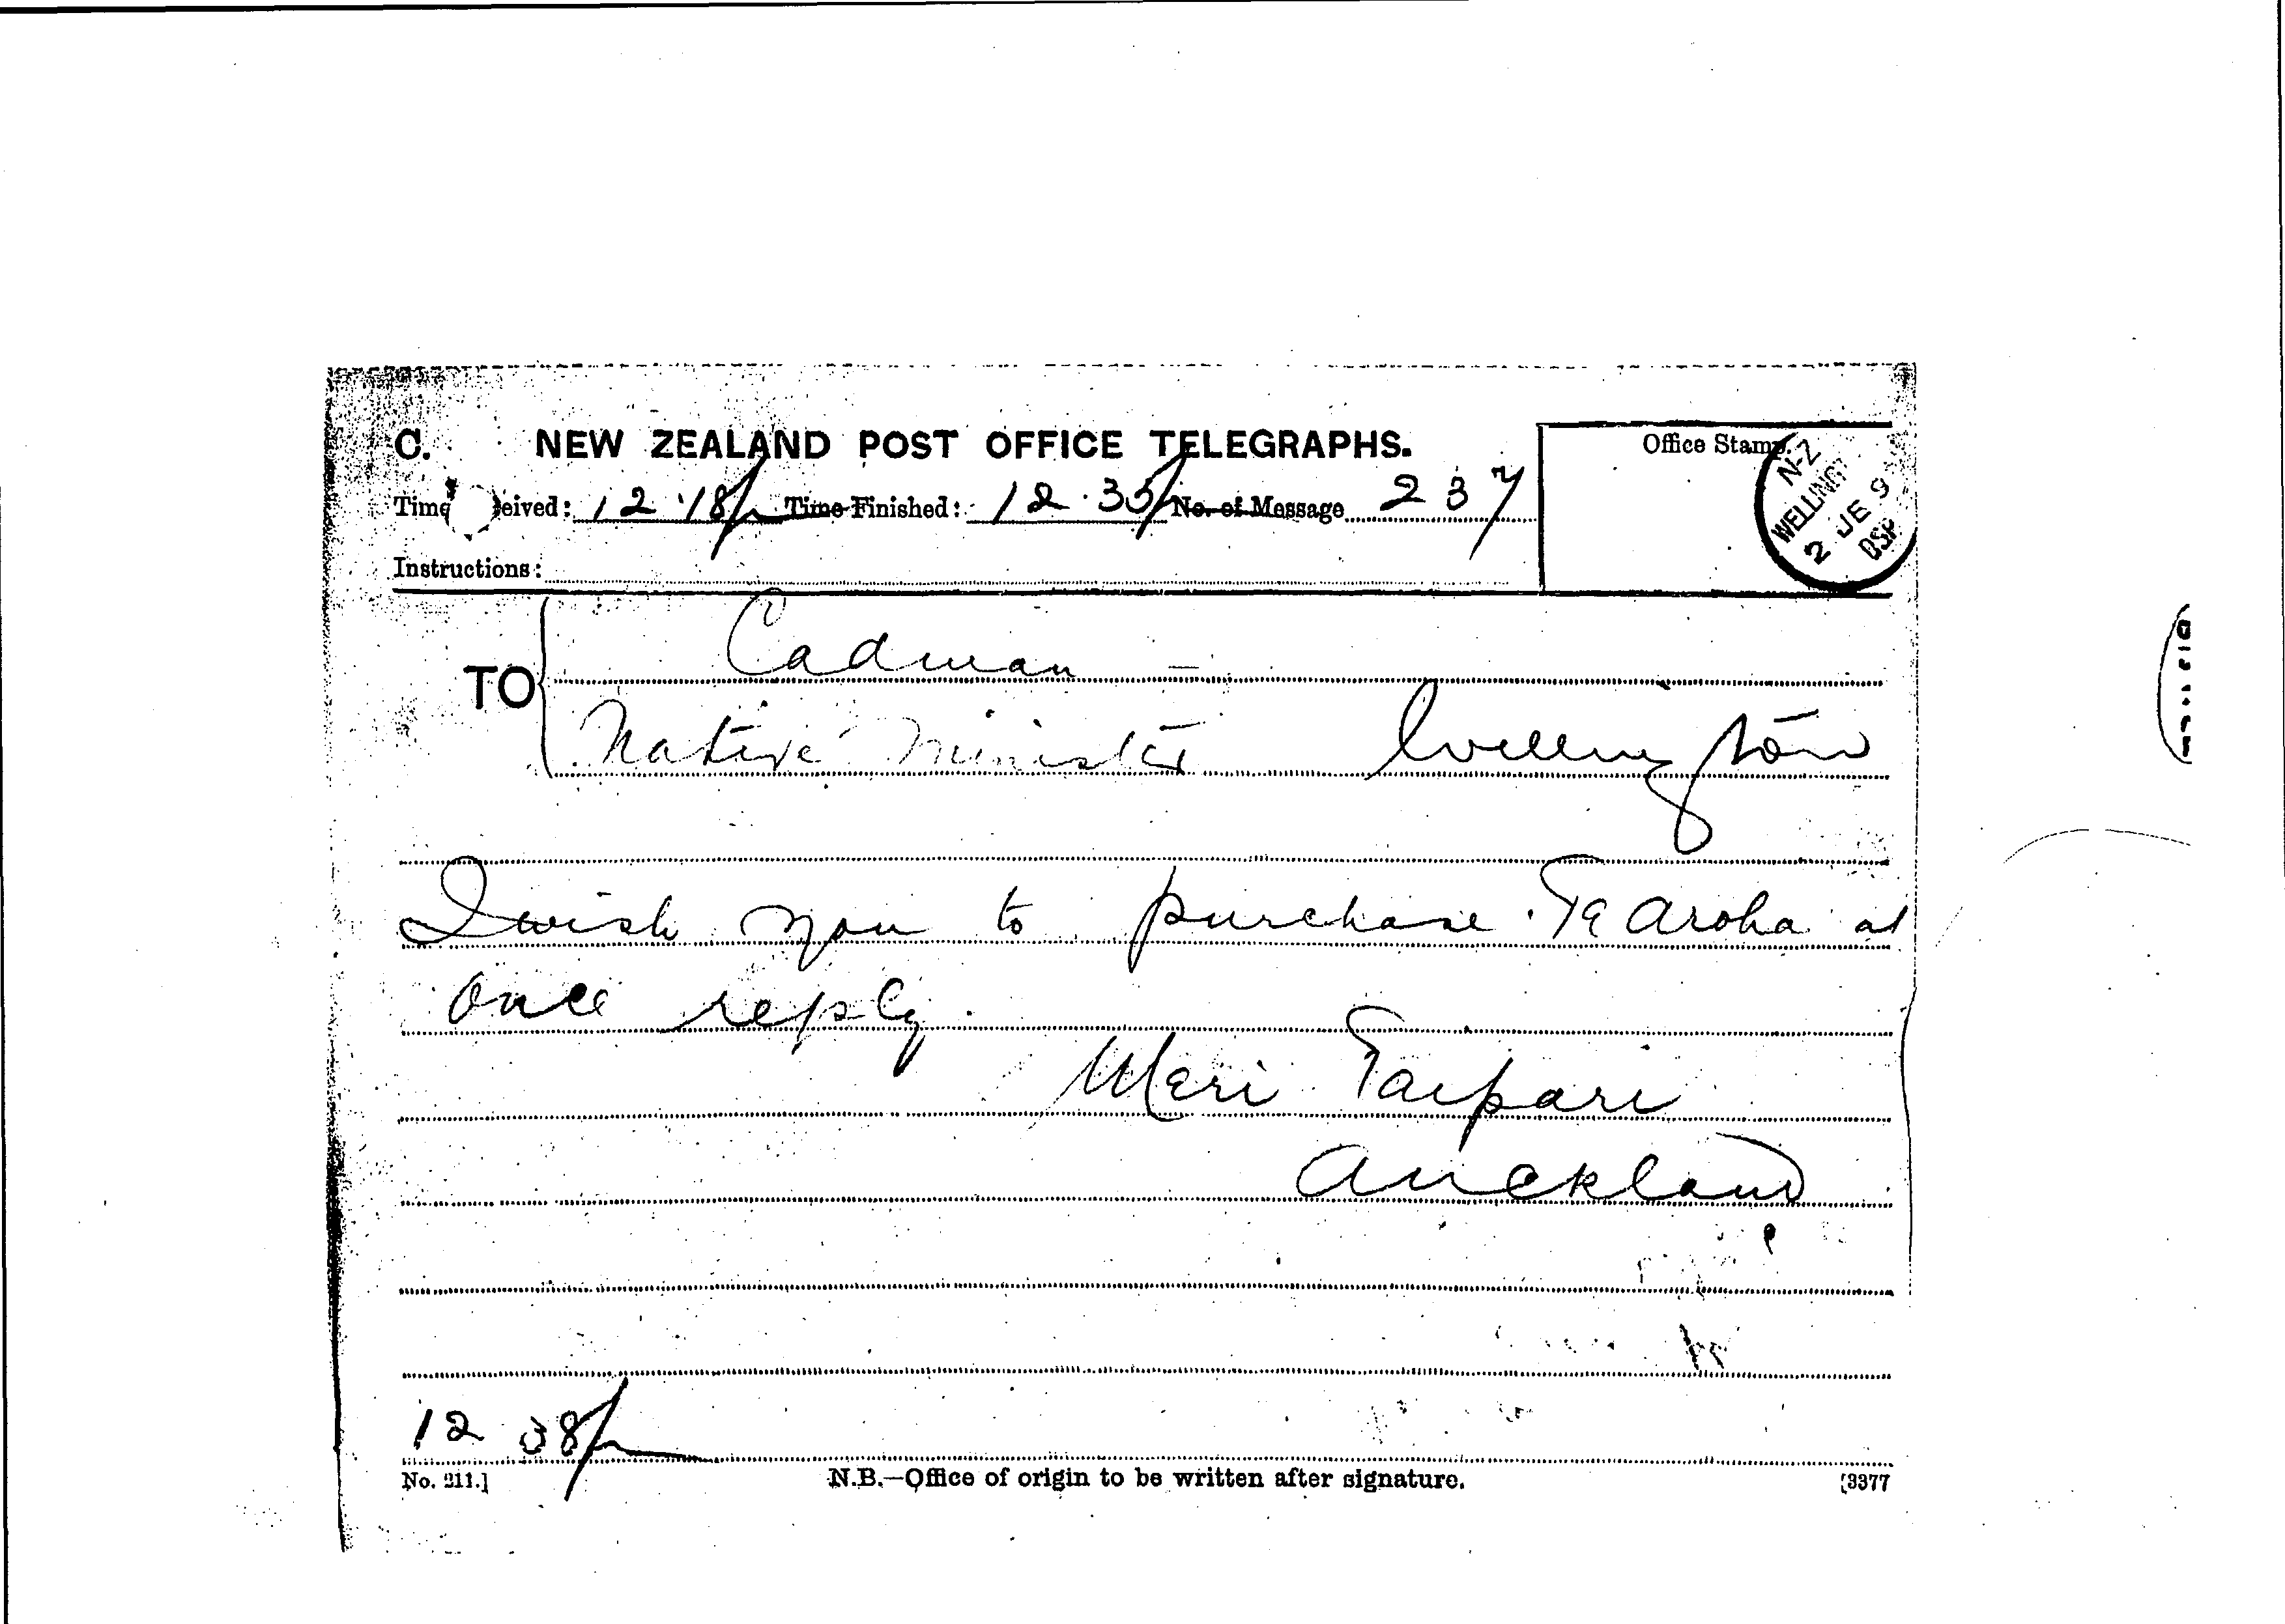 C. NEW ZEALAND POST OFFICE TELEGRAPHS.
Office Stamp.
N-Z
WELLING
2 JE 9
DSP
Time eived: 12.18p Time Finished: 12.35p No. of Message 237
Instructions:
TO
Cadman -
Native Minister Wellington
I wish you to purchase Te Aroha at
once reply.
Meri Taipari
Auckland
12 38p
No. 211.] N.B.—Office of origin to be written after signature. [3377